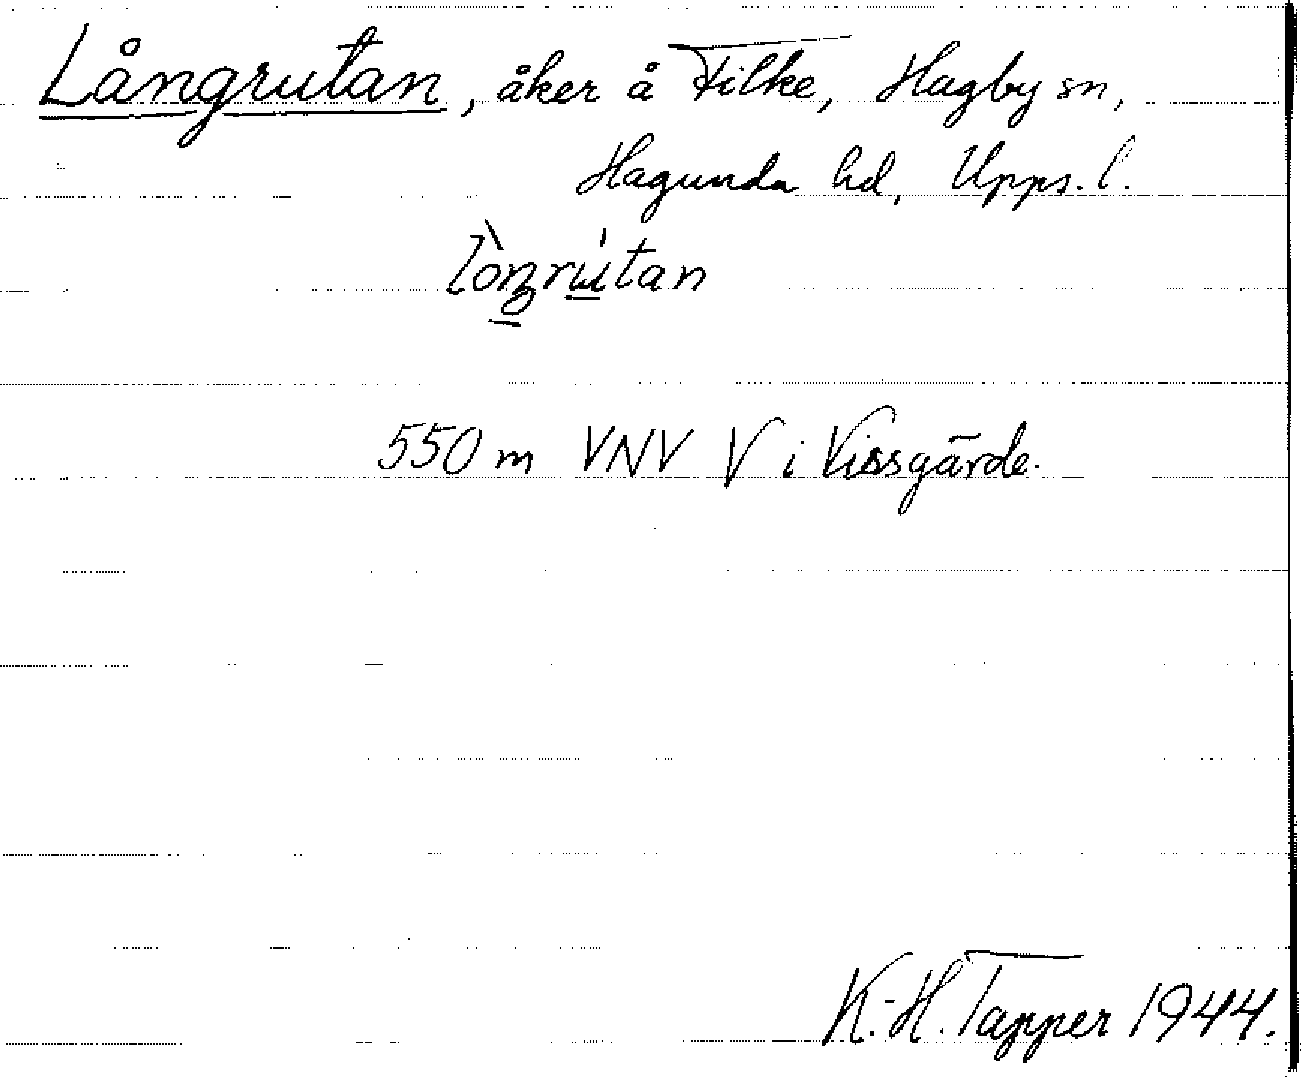 Långrutan, åker å Filke, Hagby sn,
Hagunda hd, Upps. l.
550 m VNV V i Vissgärde.
K.-H. Tapper 1944.